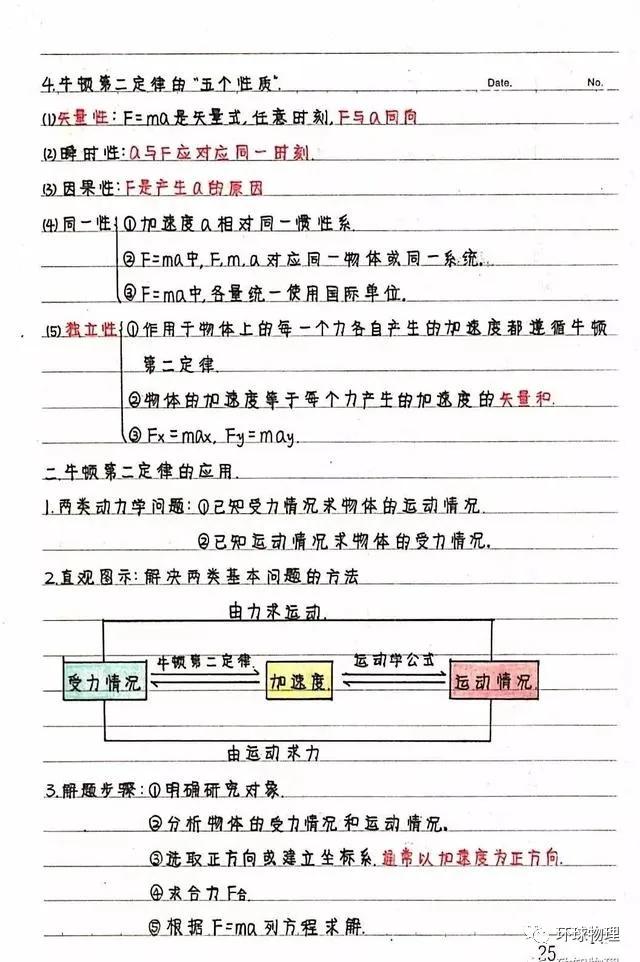 4.牛顿第二定律的"五个性质".
Date. No.
(1)矢量性:F=ma是矢量式,任意时刻,F与a同向
(2)瞬时性:a与F应对应同一时刻.
(3)因果性:F是产生a的原因
(4)同一性 ①加速度a相对同一惯性系.
②F=ma中,F,m,a对应同一物体或同一系统.
③F=ma中,各量统一使用国际单位.
(5)独立性 ①作用于物体上的每一个力各自产生的加速度都遵循牛顿
第二定律.
②物体的加速度等于每个力产生的加速度的矢量和.
③Fx=max, Fy=may.
二.牛顿第二定律的应用.
1.两类动力学问题:①已知受力情况求物体的运动情况.
②已知运动情况求物体的受力情况.
2.直观图示:解决两类基本问题的方法
由力求运动.
牛顿第二定律. 运动学公式
受力情况 加速度. 运动情况.
由运动求力
3.解题步骤:①明确研究对象.
②分析物体的受力情况和运动情况.
③选取正方向或建立坐标系.通常以加速度为正方向.
④求合力F合.
⑤根据F=ma列方程求解.
环球物理
25